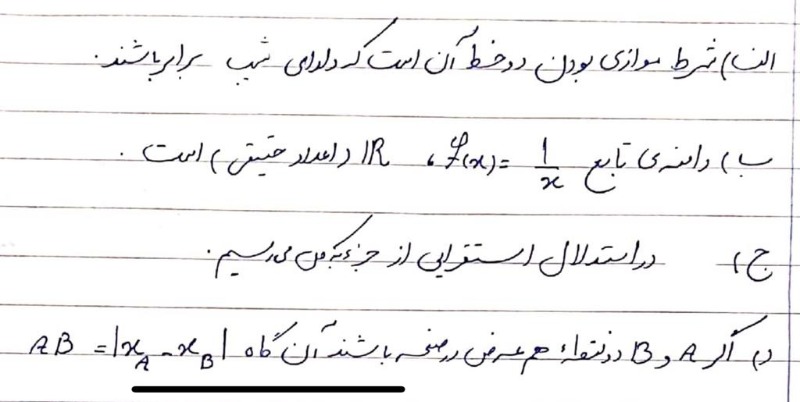 الف) شرط موازی بودن دو خط آن است که دارای شیب برابر باشند.
ب) دامنه‌ی تابع f(x) = 1/x ، IR (اعداد حقیقی) است.
ج) در استدلال استقرایی از جزء به کل می‌رسیم.
د) اگر A و B دو نقطه‌ء هم عرض در صفحه باشند آن گاه AB = |x_A - x_B|